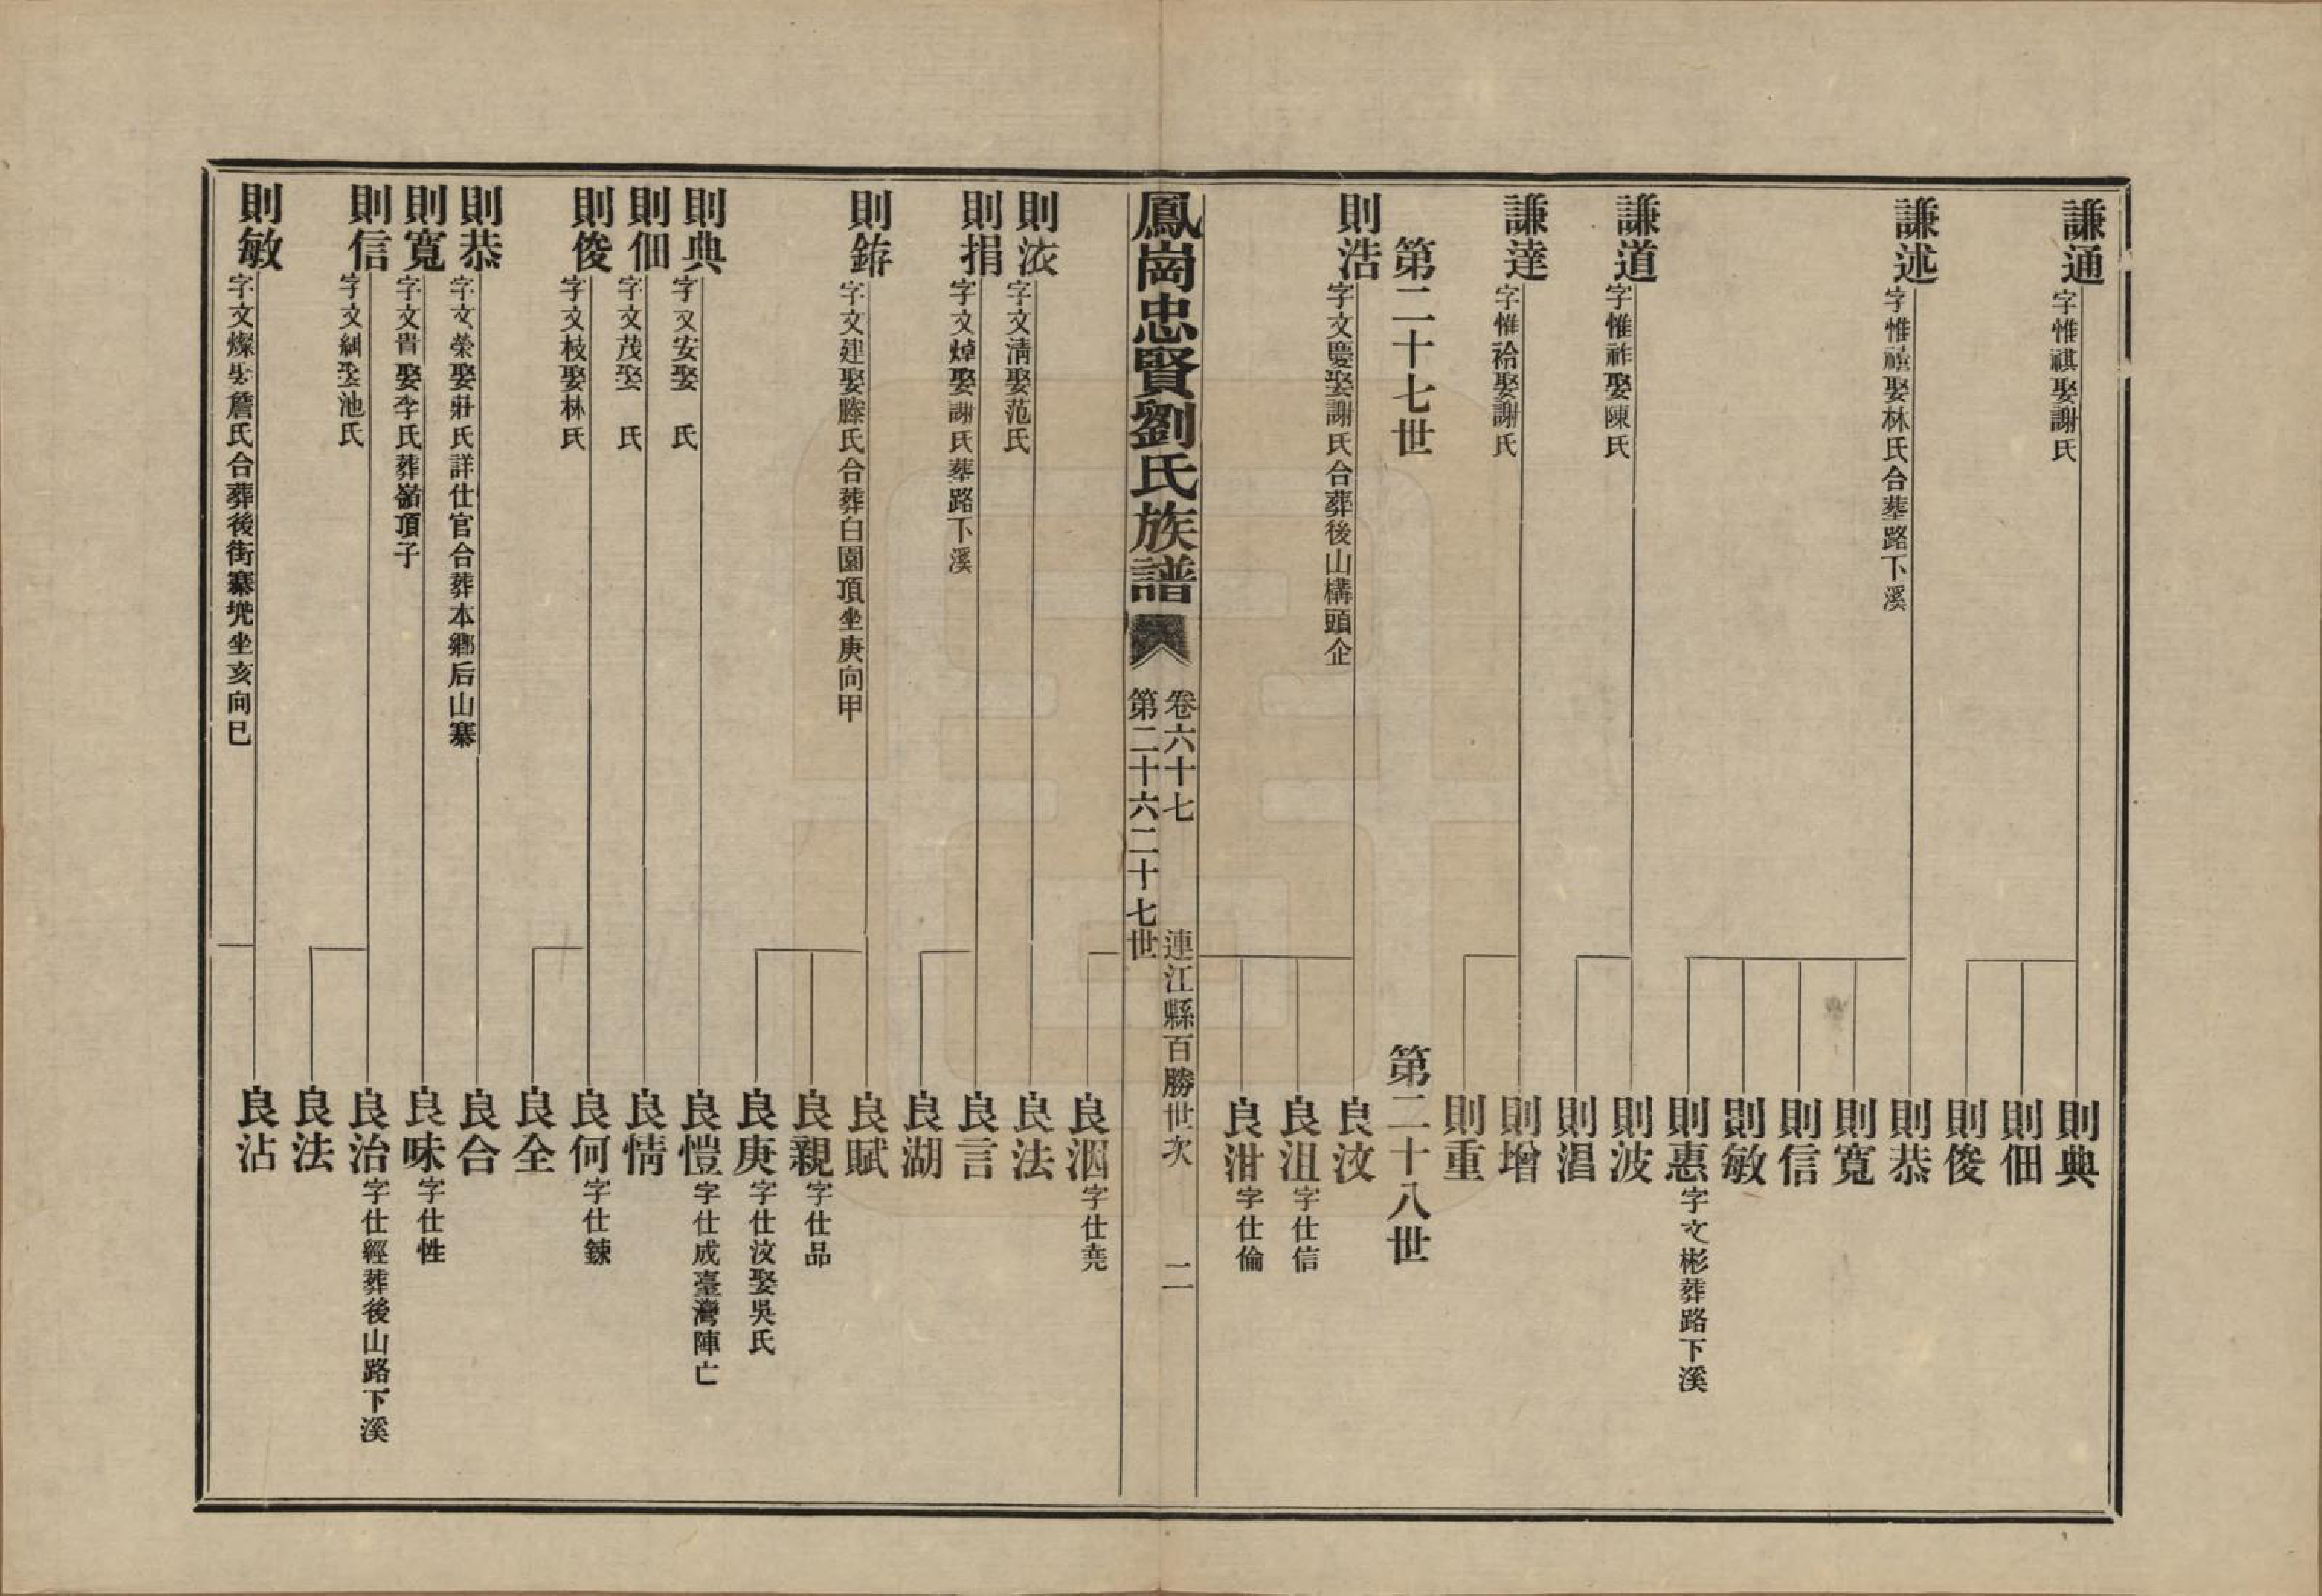 謙通
字惟祺娶謝氏
則典
則佃
則俊
謙述
字惟禧娶林氏合葬路下溪
則恭
則寬
則信
則敏
則惠
字文彬葬路下溪
謙道
字惟祚娶陳氏
則波
則淐
謙達
字惟祫娶謝氏
則增
則重
第二十七世
第二十八世
則浩
字文慶娶謝氏合葬後山構頭企
良汶
良沮
字仕信
良泔
字仕倫
鳳崗忠賢劉氏族譜
卷六十七
連江縣百勝世次
二
第二十六二十七世
良洇
字仕堯
則浓
字文淸娶范氏
良法
則捐
字文焯娶謝氏葬路下溪
良言
良湖
則銌
字文建娶滕氏合葬白園頂坐庚向甲
良賦
良親
字仕品
良庚
字仕汶娶吳氏
則典
字文安娶 氏
良愷
字仕成臺灣陣亡
則佃
字文茂娶 氏
良情
則俊
字文枝娶林氏
良何
字仕鍊
良全
則恭
字文榮娶莊氏詳仕官合葬本鄉后山寨
良合
則寬
字文貴娶李氏葬嵛頂子
良味
字仕性
則信
字文綱娶池氏
良治
字仕經葬後山路下溪
良法
則敏
字文燦娶詹氏合葬後街寨兠坐亥向巳
良沾